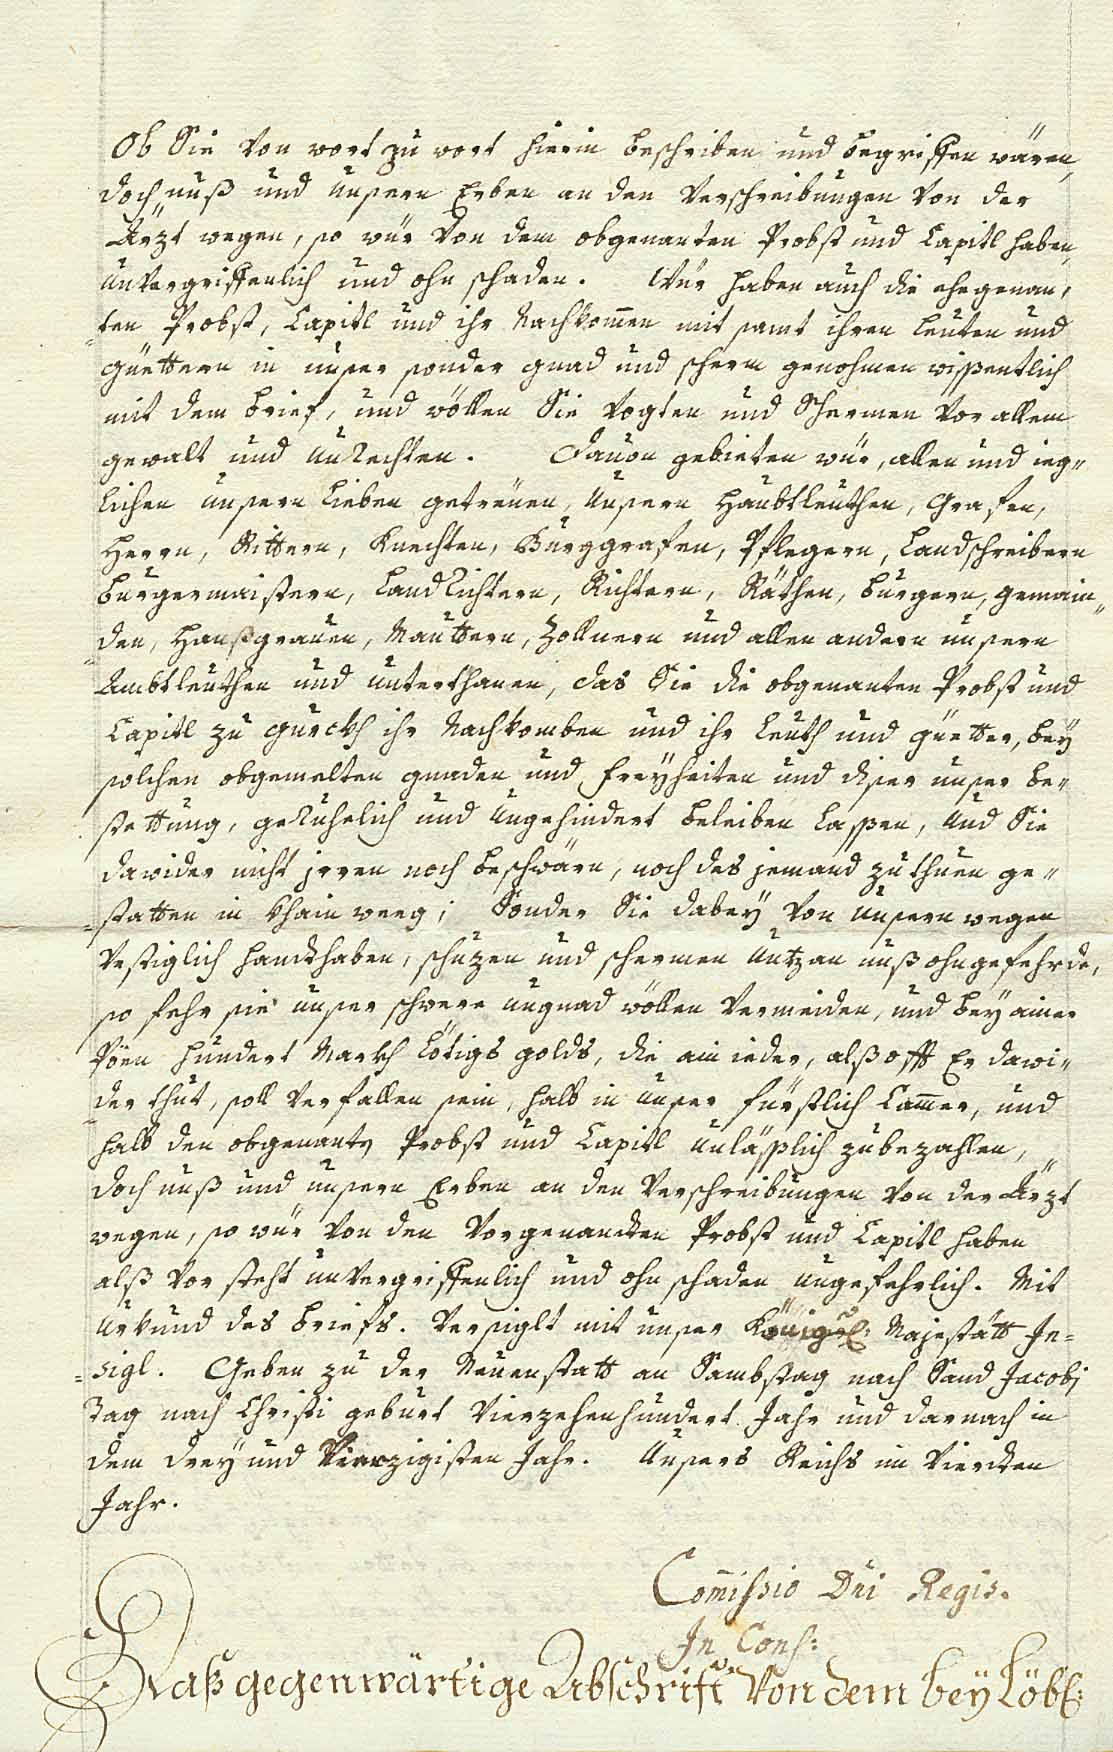 Ob Sie von wort zu wort hierin beschriben und begriffen wären,
doch unß und unsern Erben an den Verschreibungen von der
Ärzt wegen, so wür von dem obgenanten Probst und Capitl haben,
unvergriffenlich und ohn schaden. Wür haben auch die ehegenan,
ten Probst, Capitl und ihr Nachkom̄en mit samt ihren leuten und
güettern in unser sonder gnad und scherm genohmen wissentlich
mit dem brief, und wöllen Sie vogten und Schermen vor allem
gewalt und unRechten. Dauon gebieten wür, allen und ieg„
lichen unsern lieben getreüen, unsern Haubtleuthen, Grafen,
Herrn, Rittern, Knechten, Burggrafen, Pflegern, landschreibern
burgermaistern, landRichtern, Richtern, Räthen, burgern, gemain„
den, Hanßgrauen, Mauttern, Zollnern und allen andern unsern
Ambtleuthen und unterthanen, das Sie die obgenanten Probst und
Capitl zu gurckh ihr Nachkomben und ihr leuth und güetter, beÿ
solchen obgemelten gnaden und freÿheiten und diser unser be„
stettung, geRuhelich und ungehindert beleiben lassen, und Sie
dawider nicht jrren noch beschwärn, noch des jemand zu thuen ge„
statten in khain weeg; Sonder Sie dabeÿ von unsern wegen
vestiglich handthaben, schuzen und schermen untz an unß ohngefehrde,
so fehr sie unser schwere ungnad wöllen vermeiden, und beÿ ainer
Pöen hundert Markh lötigs golds, die ain ieder, alß offt Er dawi„
der thut, soll verfallen sein, halb in unser fürstlich Cam̄er, und
halb den obgenantẏ Probst und Capitl unläßlich zubezahlen,
doch unß und unsern Erben an den Verschreibungen von der Ärzt
wegen, so wür von den vorgenandten Probst und Capitl haben
alß vor steht unvergriffenlich und ohn schaden ungefehrlich. Mit
urkund des briefs. Versiglt mit unser Königl: Majestätt In=
=sigl. Geben zu der Neuenstatt an Sambstag nach Sand Jacobj
Tag nach Christi geburt Vierzehenhundert Jahr und darnach in
dem dreÿ und Vierzigisten Jahr. Unsers Reichs im Vierdten
Jahr.
Com̄issio Dnī Regis.
In Cons:
Daß gegenwärtige Abschrift von dem beÿ Löbl: